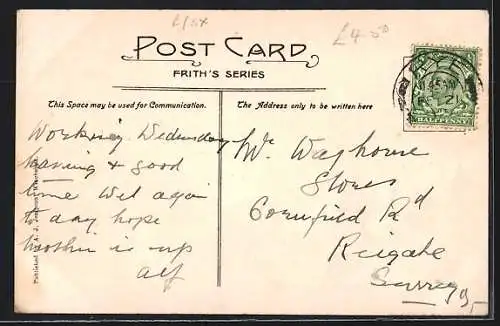 £4.50
POST CARD
FRITH'S SERIES
This Space may be used for Communication.
The Address only to be written here
Working Wednesday
having a good
time Wet again
to day hope
is up
Alf
Mr Waghouse
Stores
Cornfield Rd
Reigate
Surrey
HALFPENNY
Published by A. J.